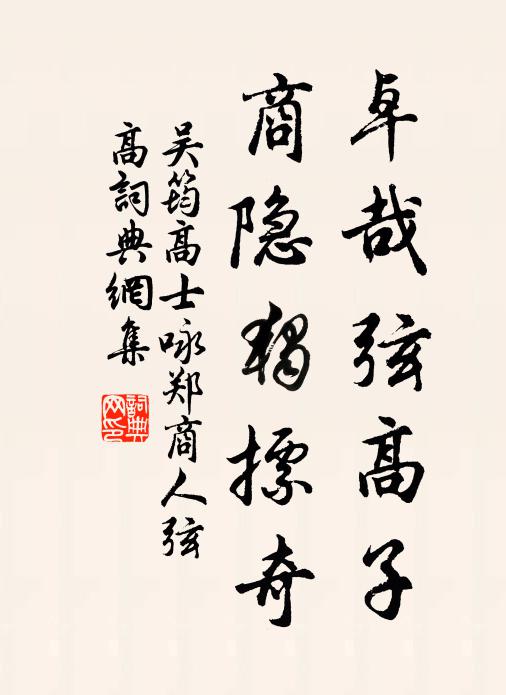 卓哉弦高子
商隐独摽奇
吴筠高士咏郑商人弦
高詞典網集
詞典網印